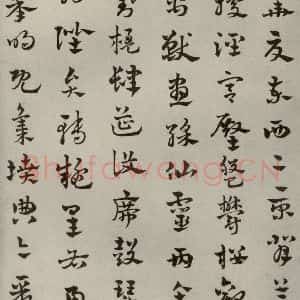 華夏東西二京背芒
據涇宮殿盤鬱樓觀
禽獸畫綵仙靈丙舍
對楹肆筵設席鼓瑟
納陛弁轉疑星右通
承明既集墳典亦聚
Shufawang.CN